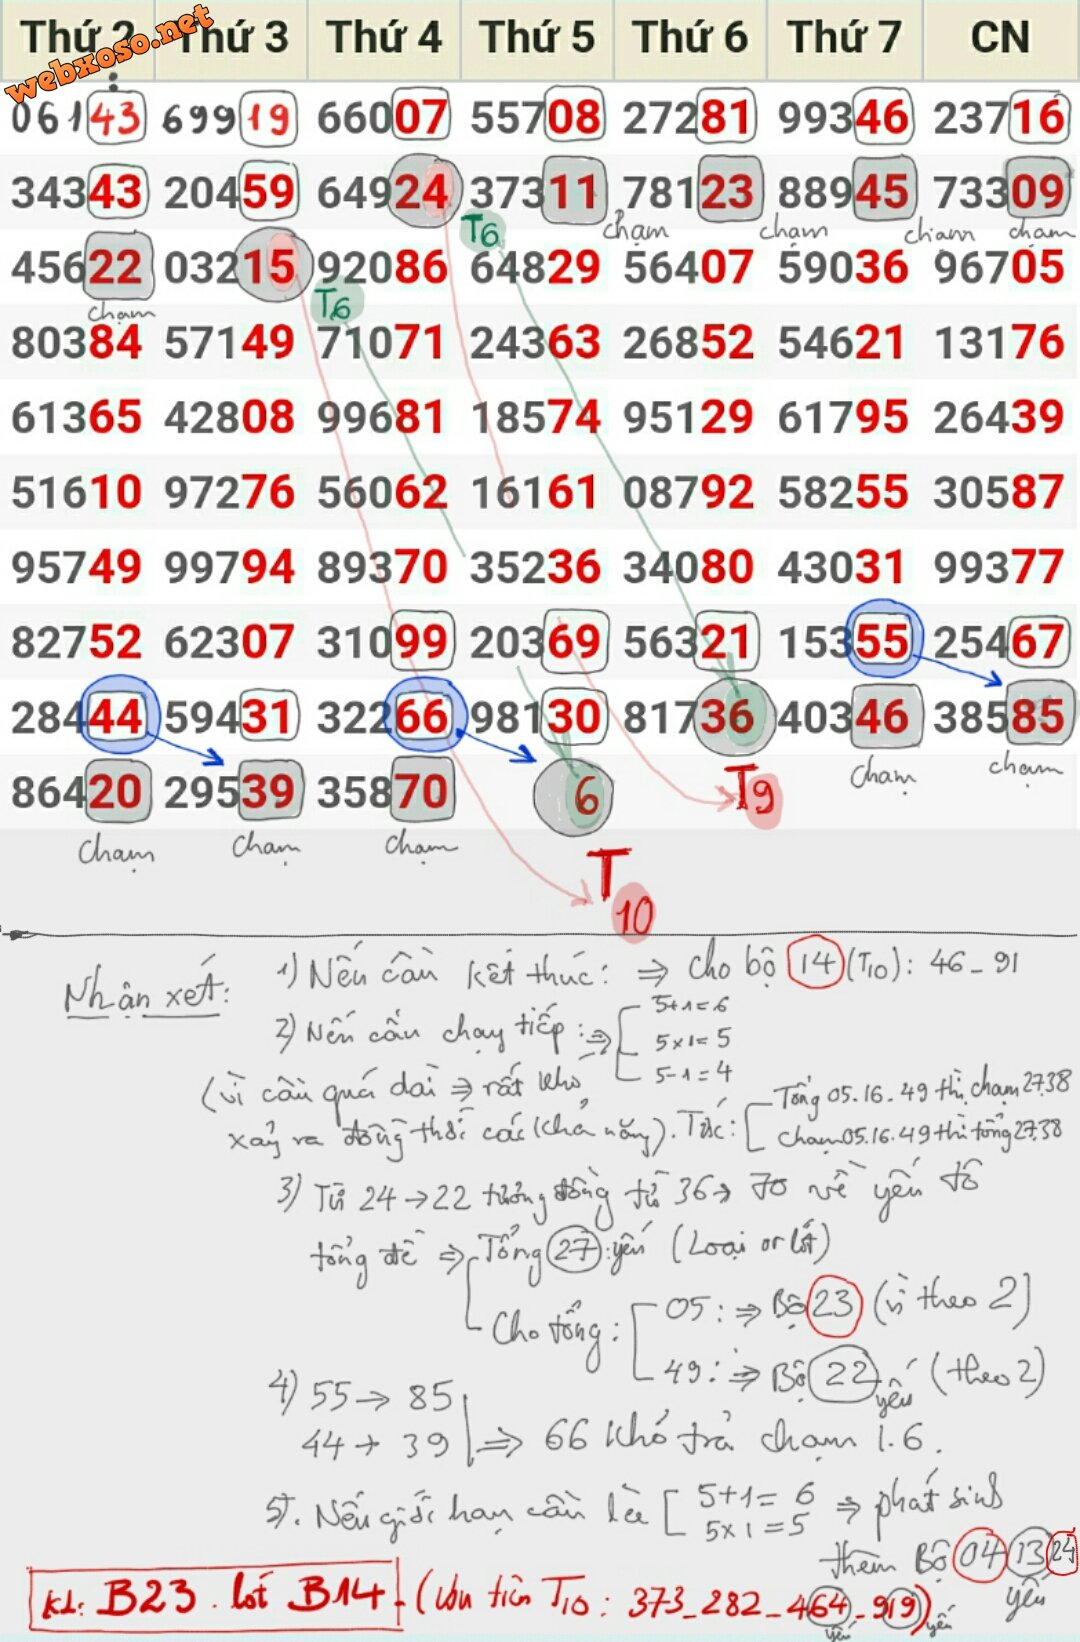 Thứ 2 Thứ 3 Thứ 4 Thứ 5 Thứ 6 Thứ 7 CN
webxoso.net
06143 69919 66007 55708 27281 99346 23716
34343 20459 64924 37311 78123 88945 73309
T6 chạm chạm chạm chạm
45622 03215 92086 64829 56407 59036 96705
chạm T6
80384 57149 71071 24363 26852 54621 13176
61365 42808 99681 18574 95129 61795 26439
51610 97276 56062 16161 08792 58255 30587
95749 99794 89370 35236 34080 43031 99377
82752 62307 31099 20369 56321 15355 25467
28444 59431 32266 98130 81736 40346 38585
chạm chạm
86420 29539 35870 6 T9
chạm chạm chạm
T10
Nhận xét: 1) Nếu cầu kết thúc: ⇒ cho bộ 14 (T10): 46_91
2) Nếu cầu chạy tiếp: ⇒ 5+1=6
5x1=5
5-1=4
(vì cầu quá dài ⇒ rất khó
xảy ra đồng thời các khả năng). Tức: Tổng 05.16.49 thì chạm 27.38
chạm 05.16.49 thì tổng 27.38
3) Từ 24→22 tương đồng từ 36→70 về yếu tố
tổng đề ⇒ Tổng 27: yếu (Loại or lót)
Cho tổng: 05: ⇒ Bộ 23 (vì theo 2)
49: ⇒ Bộ 22 yếu (theo 2)
4) 55→85
44→39 ⇒ 66 khó trả chạm 1.6.
5). Nếu giới hạn cầu 5+1=6
5x1=5 ⇒ phát sinh
thêm Bộ 04 13 24
yếu
KL: B23. lót B14 - (ưu tiên T10: 373_282_464_919)
yếu yếu